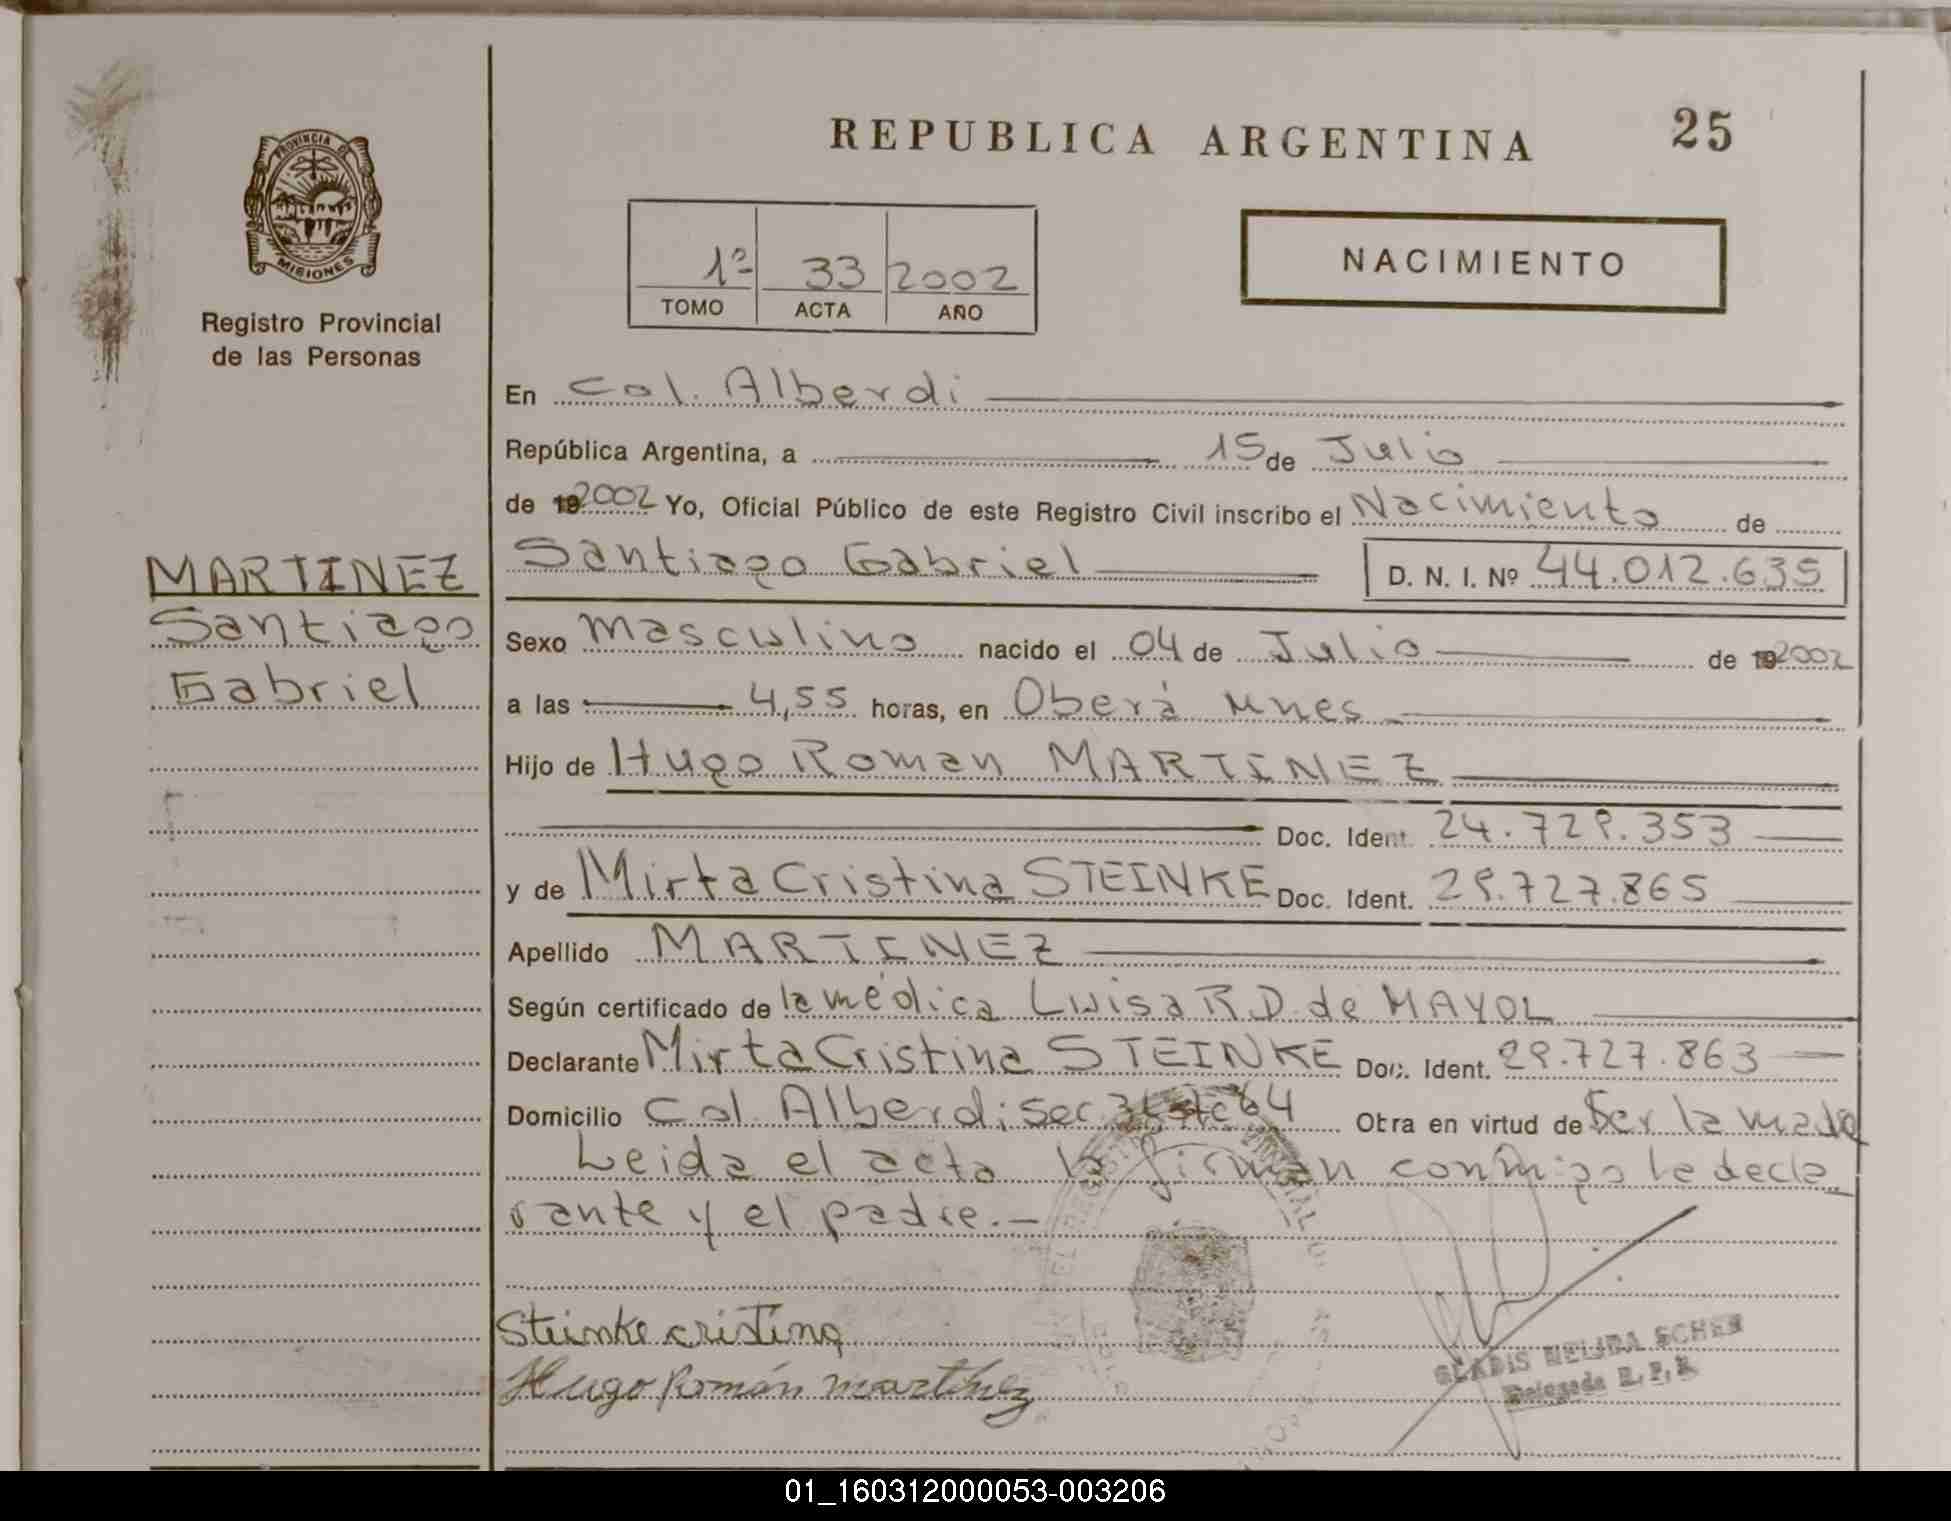 REPUBLICA ARGENTINA
25
PROVINCIA DE
MISIONES
Registro Provincial
de las Personas
1º 33 2002
TOMO ACTA AÑO
NACIMIENTO
En Col. Alberdi
República Argentina, a 15 de Julio
de 2002 Yo, Oficial Público de este Registro Civil inscribo el Nacimiento de
Santiago Gabriel D. N. I. Nº 44.012.635
MARTINEZ
Santiago
Gabriel
Sexo Masculino nacido el 04 de Julio de 2002
a las 4,55 horas, en Oberá Mnes
Hijo de Hugo Roman MARTINEZ
Doc. Ident. 24.729.353
y de Mirta Cristina STEINKE Doc. Ident. 29.727.865
Apellido MARTINEZ
Según certificado de la médica Luisa R.D. de MAYOL
Declarante Mirta Cristina STEINKE Doc. Ident. 29.727.863
Domicilio Col. Alberdi; Sec 64 Otra en virtud de Ser la madre
Leida el acta la firman conmigo la decla
rante y el padre.-
Steinke cristina
Hugo Román martinez
GLADIS NELIDA SCHER
Delegada R. P. P.
01_160312000053-003206